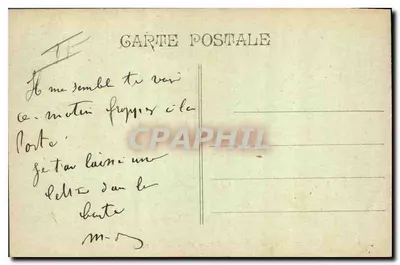 CARTE POSTALE
Il me semble te voir
ce matin frapper à la
Porte.
Je t'ai laissé une
lettre dans la
boite
CPARAMA.COM